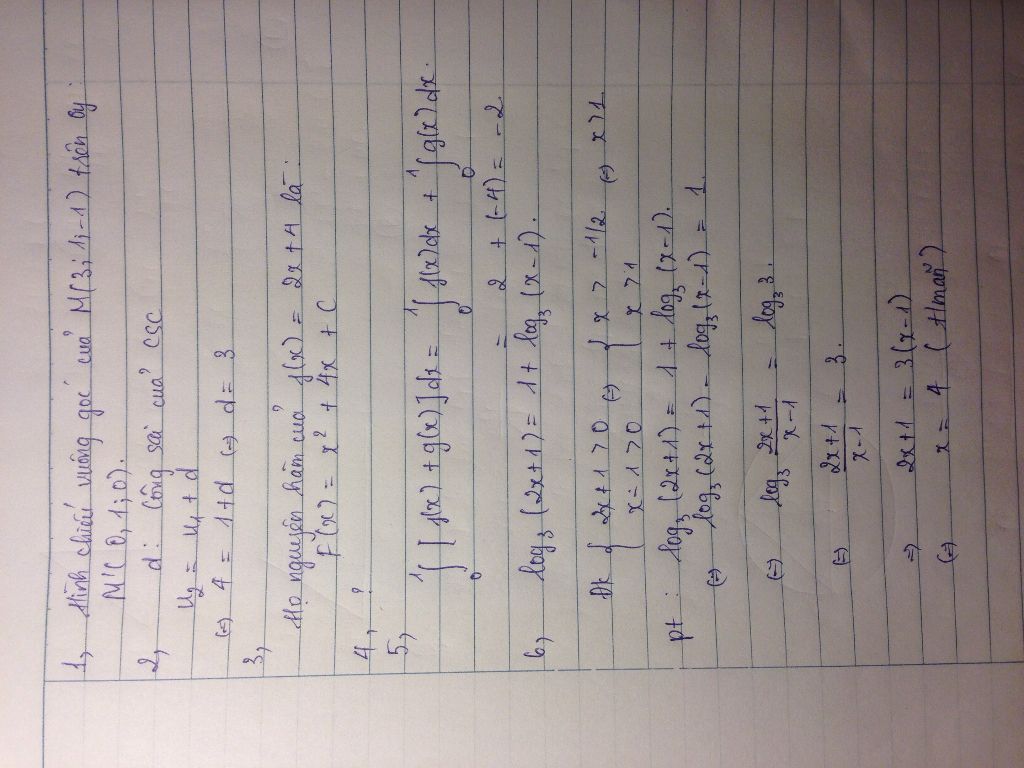 1, Hình chiếu vuông góc của M(3; 1; -1) trên Oy:
M'(0; 1; 0).
2, d: công sai của CSC
u₂ = u₁ + d
(=) 4 = 1 + d (=) d = 3
3,
Họ nguyên hàm của f(x) = 2x + 4 là:
F(x) = x² + 4x + C
4, ?
5, ∫₀¹ [f(x) + g(x)]dx = ∫₀¹ f(x)dx + ∫₀¹ g(x)dx.
= 2 + (-4) = -2
6, log₃(2x+1) = 1 + log₃(x-1).
Đk { 2x+1 > 0 (=) { x > -1/2 (=) x > 1
x-1 > 0 x > 1
pt: log₃(2x+1) = 1 + log₃(x-1).
(=) log₃(2x+1) - log₃(x-1) = 1
(=) log₃ (2x+1)/(x-1) = log₃ 3.
(=) (2x+1)/(x-1) = 3.
=) 2x+1 = 3(x-1)
(=) x = 4 (thỏa mãn)